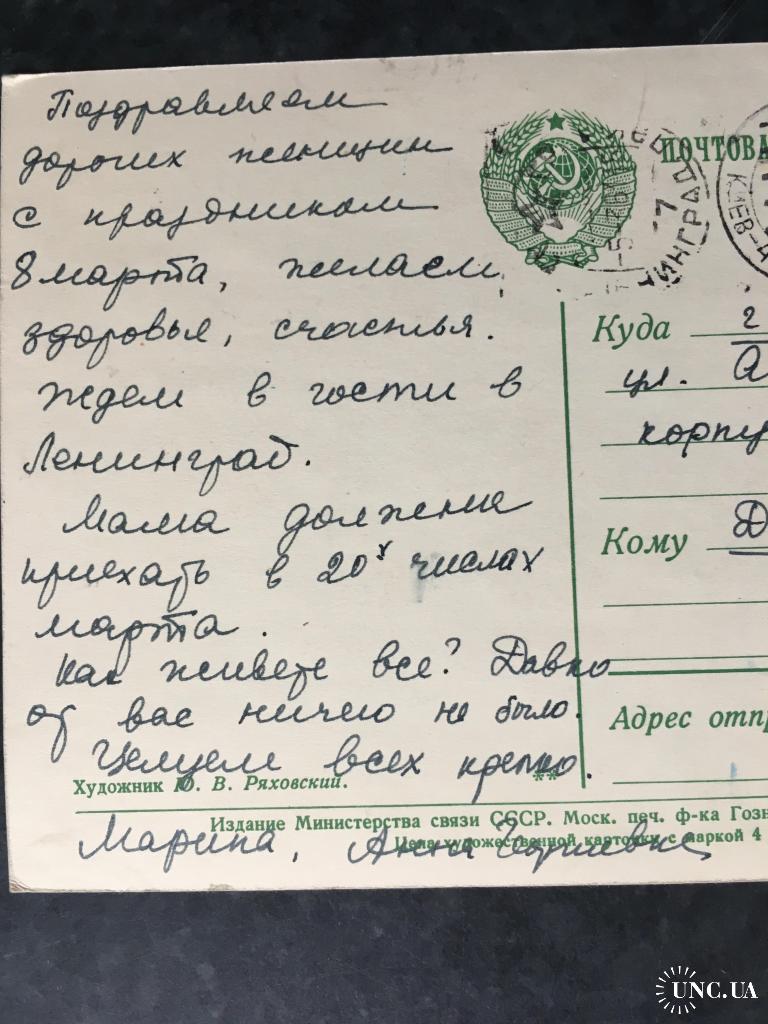 Поздравляем
дорогих женщин
с праздником
8 марта, желаем
здоровья, счастья.
Ждем в гости в
Ленинград.
Мама должна
приехать в 20х числах
марта.
Как живете все? Давно
от вас ничего не было.
Целуем всех крепко.
Марина, Анна
ПОЧТОВА
КИЕВ-Ц
Куда г
ул. А
корпу
Кому Д
Адрес отпр
Художник Ю. В. Ряховский.
Издание Министерства связи СССР. Моск. печ. ф-ка Гозн
Цена художественной карточки с маркой 4
UNC.UA